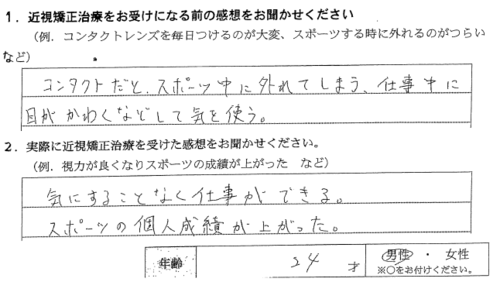 １．近視矯正治療をお受けになる前の感想をお聞かせください
（例．コンタクトレンズを毎日つけるのが大変、スポーツする時に外れるのがつらい
など）
コンタクトだと、スポーツ中に外れてしまう、仕事中に
目がかわくなどして気を使う。
２．実際に近視矯正治療を受けた感想をお聞かせください。
（例．視力が良くなりスポーツの成績が上がった　など）
気にすることなく仕事ができる。
スポーツの個人成績が上がった。
年齢 24 才 男性 ・ 女性
※○をお付けください。